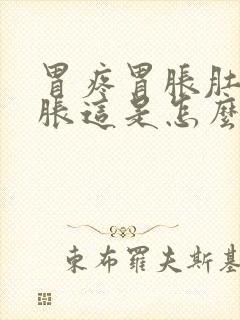 胃疼胃脹肚
脹這是怎麼
東布羅夫斯基